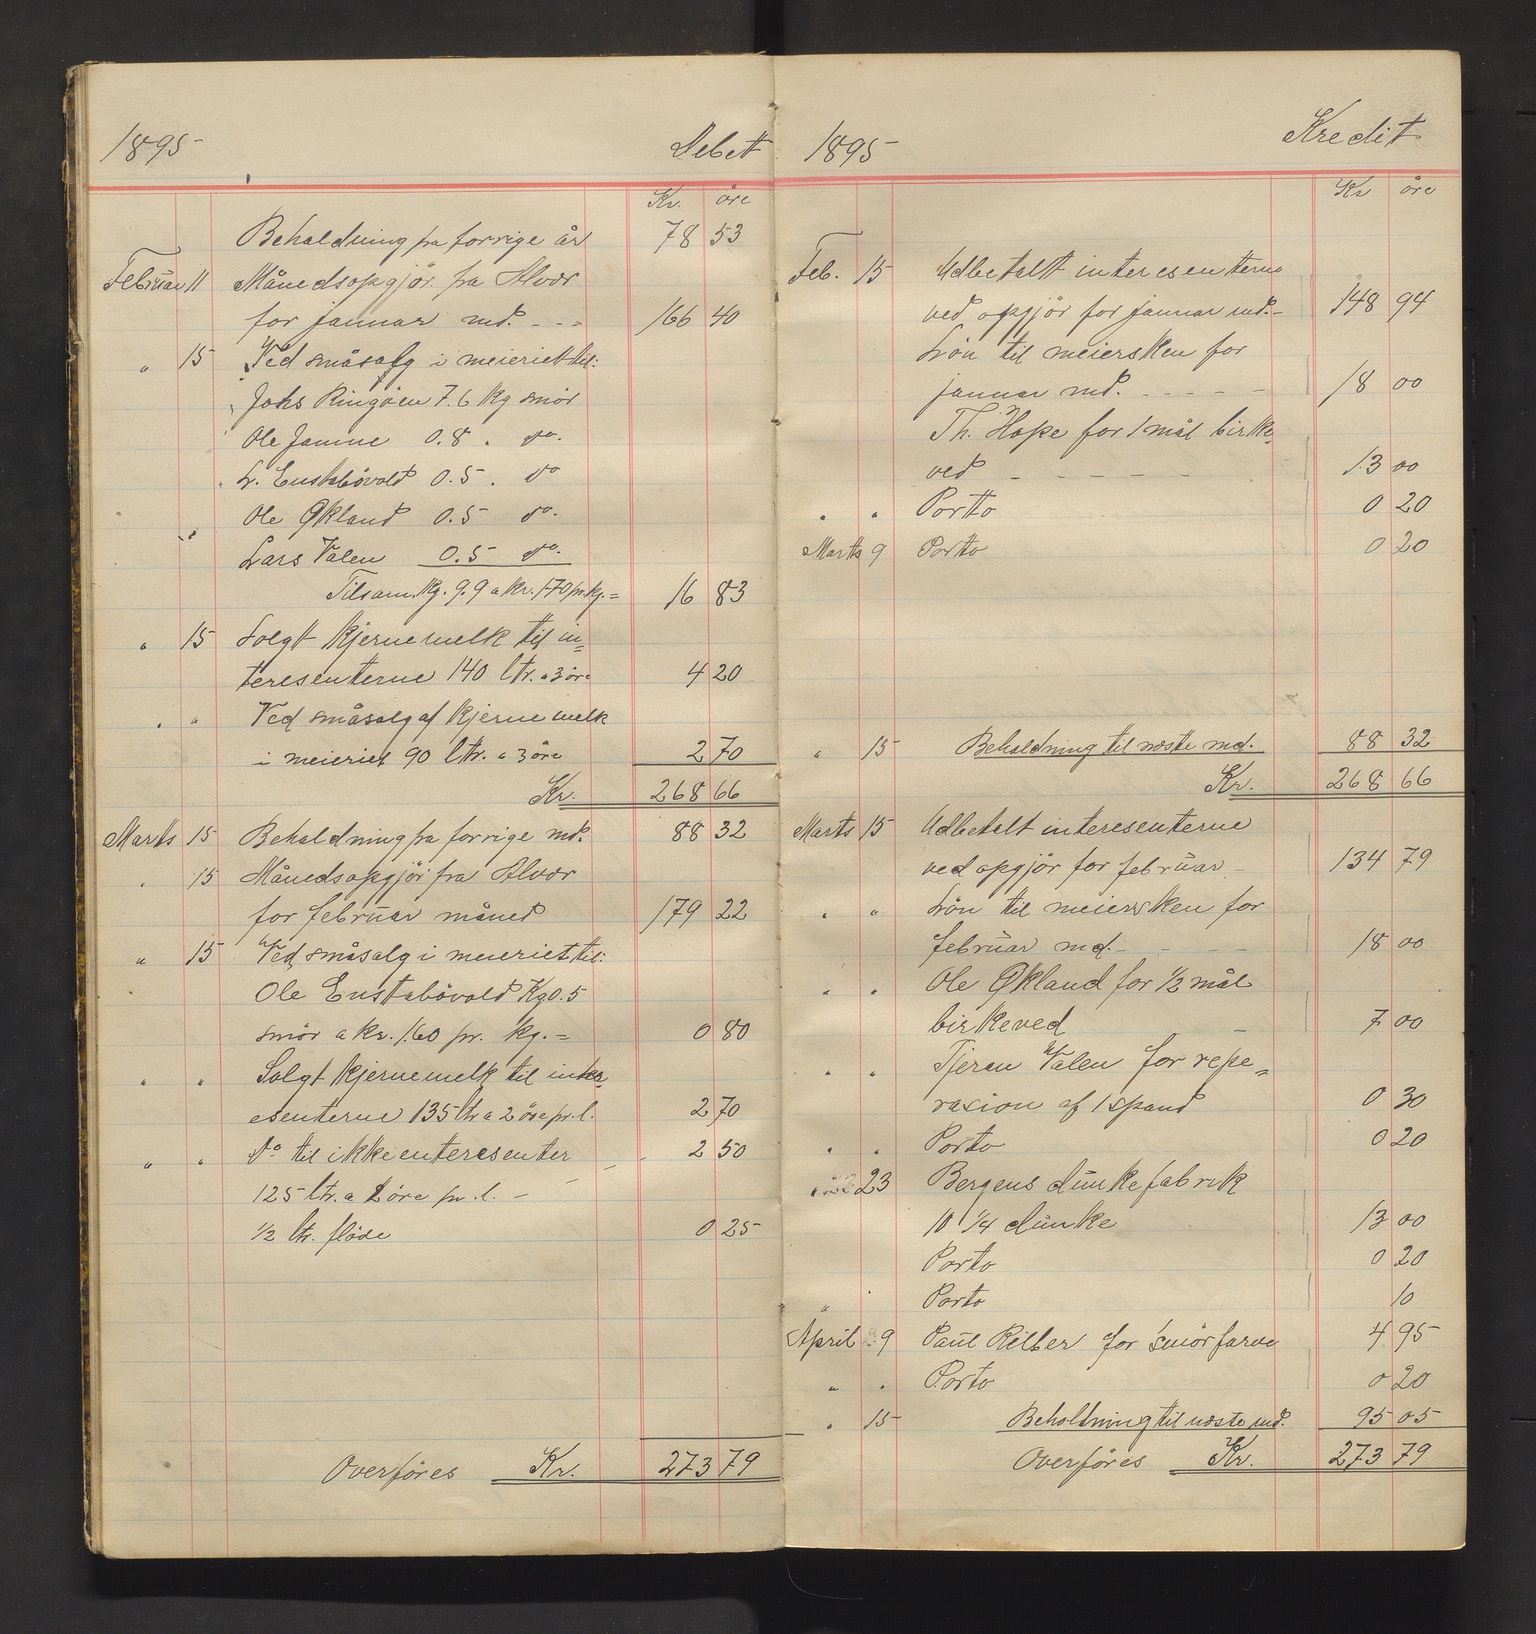 1895 Debet
Kr. öre
Behaldning fra forrige år 78 53
Februar 11 Månedsopgjör fra Alvær
for januar md. - - - 166 40
" 15 Ved småsalg i meieriet til:
Johs Ringöen 7.6 kg smör
Ole Jamne 0.8 " do.
L. Eustabövold 0.5 " do
Ole Økland 0.5 do.
Lars Valen 0.5 do.
Tilsam. kg. 9.9 a kr. 1.70 pr. kg. = 16 83
" 15 Solgt kjernemelk til in=
teresenterne 140 ltr. a 3 öre 4 20
" " Ved småsalg af kjernemelk
i meieriet 90 ltr. a 3 öre 2 70
Kr. 268 66
Marts 15 Behaldning fra forrige md. 88 32
" 15 Månedsopgjör fra Alvær
for februar måned 179 22
" 15 Ved småsalg i meieriet til:
Ole Eustabövold Kg 0.5
smör a kr. 1.60 pr. kg. = 0 80
" " Solgt kjernemelk til inter
esenterne 135 ltr a 2 öre pr. l. 2 70
" " Do til ikkeenteresenter 2 50
125 ltr. a 2 öre pr. l. -
1/2 ltr. flöde 0 25
Overföres Kr. 273 79
1895 Kredit
Kr öre
Feb. 15 Udbetalt interesenterne
ved opgjör for januar md. - 148 94
Lön til meiersken for
januar md. - - - - - 18 00
Th. Hope for 1 mål birke=
ved - - - - - 13 00
" " Porto 0 20
Marts 9 Porto 0 20
" 15 Behaldning til næste md. 88 32
Kr. 268 66
Marts 15 Udbetalt interesenterne
ved opgjör for februar - 134 79
" " Lön til meiersken for
februar md. - - - 18 00
" " Ole Økland for 1/2 mål
birkeved - 7 00
" " Tjeran Valen for repe=
rasion af 1 spand 0 30
" " Porto 0 20
23 Bergens dunkefabrik
10 1/4 dunke 13 00
Porto 0 20
" " Porto 10
April 9 Paul Rieber for smörfarve 4 95
" " Porto 0 20
" 15 Beholtning til næste md. 95 05
Overföres Kr. 273 79